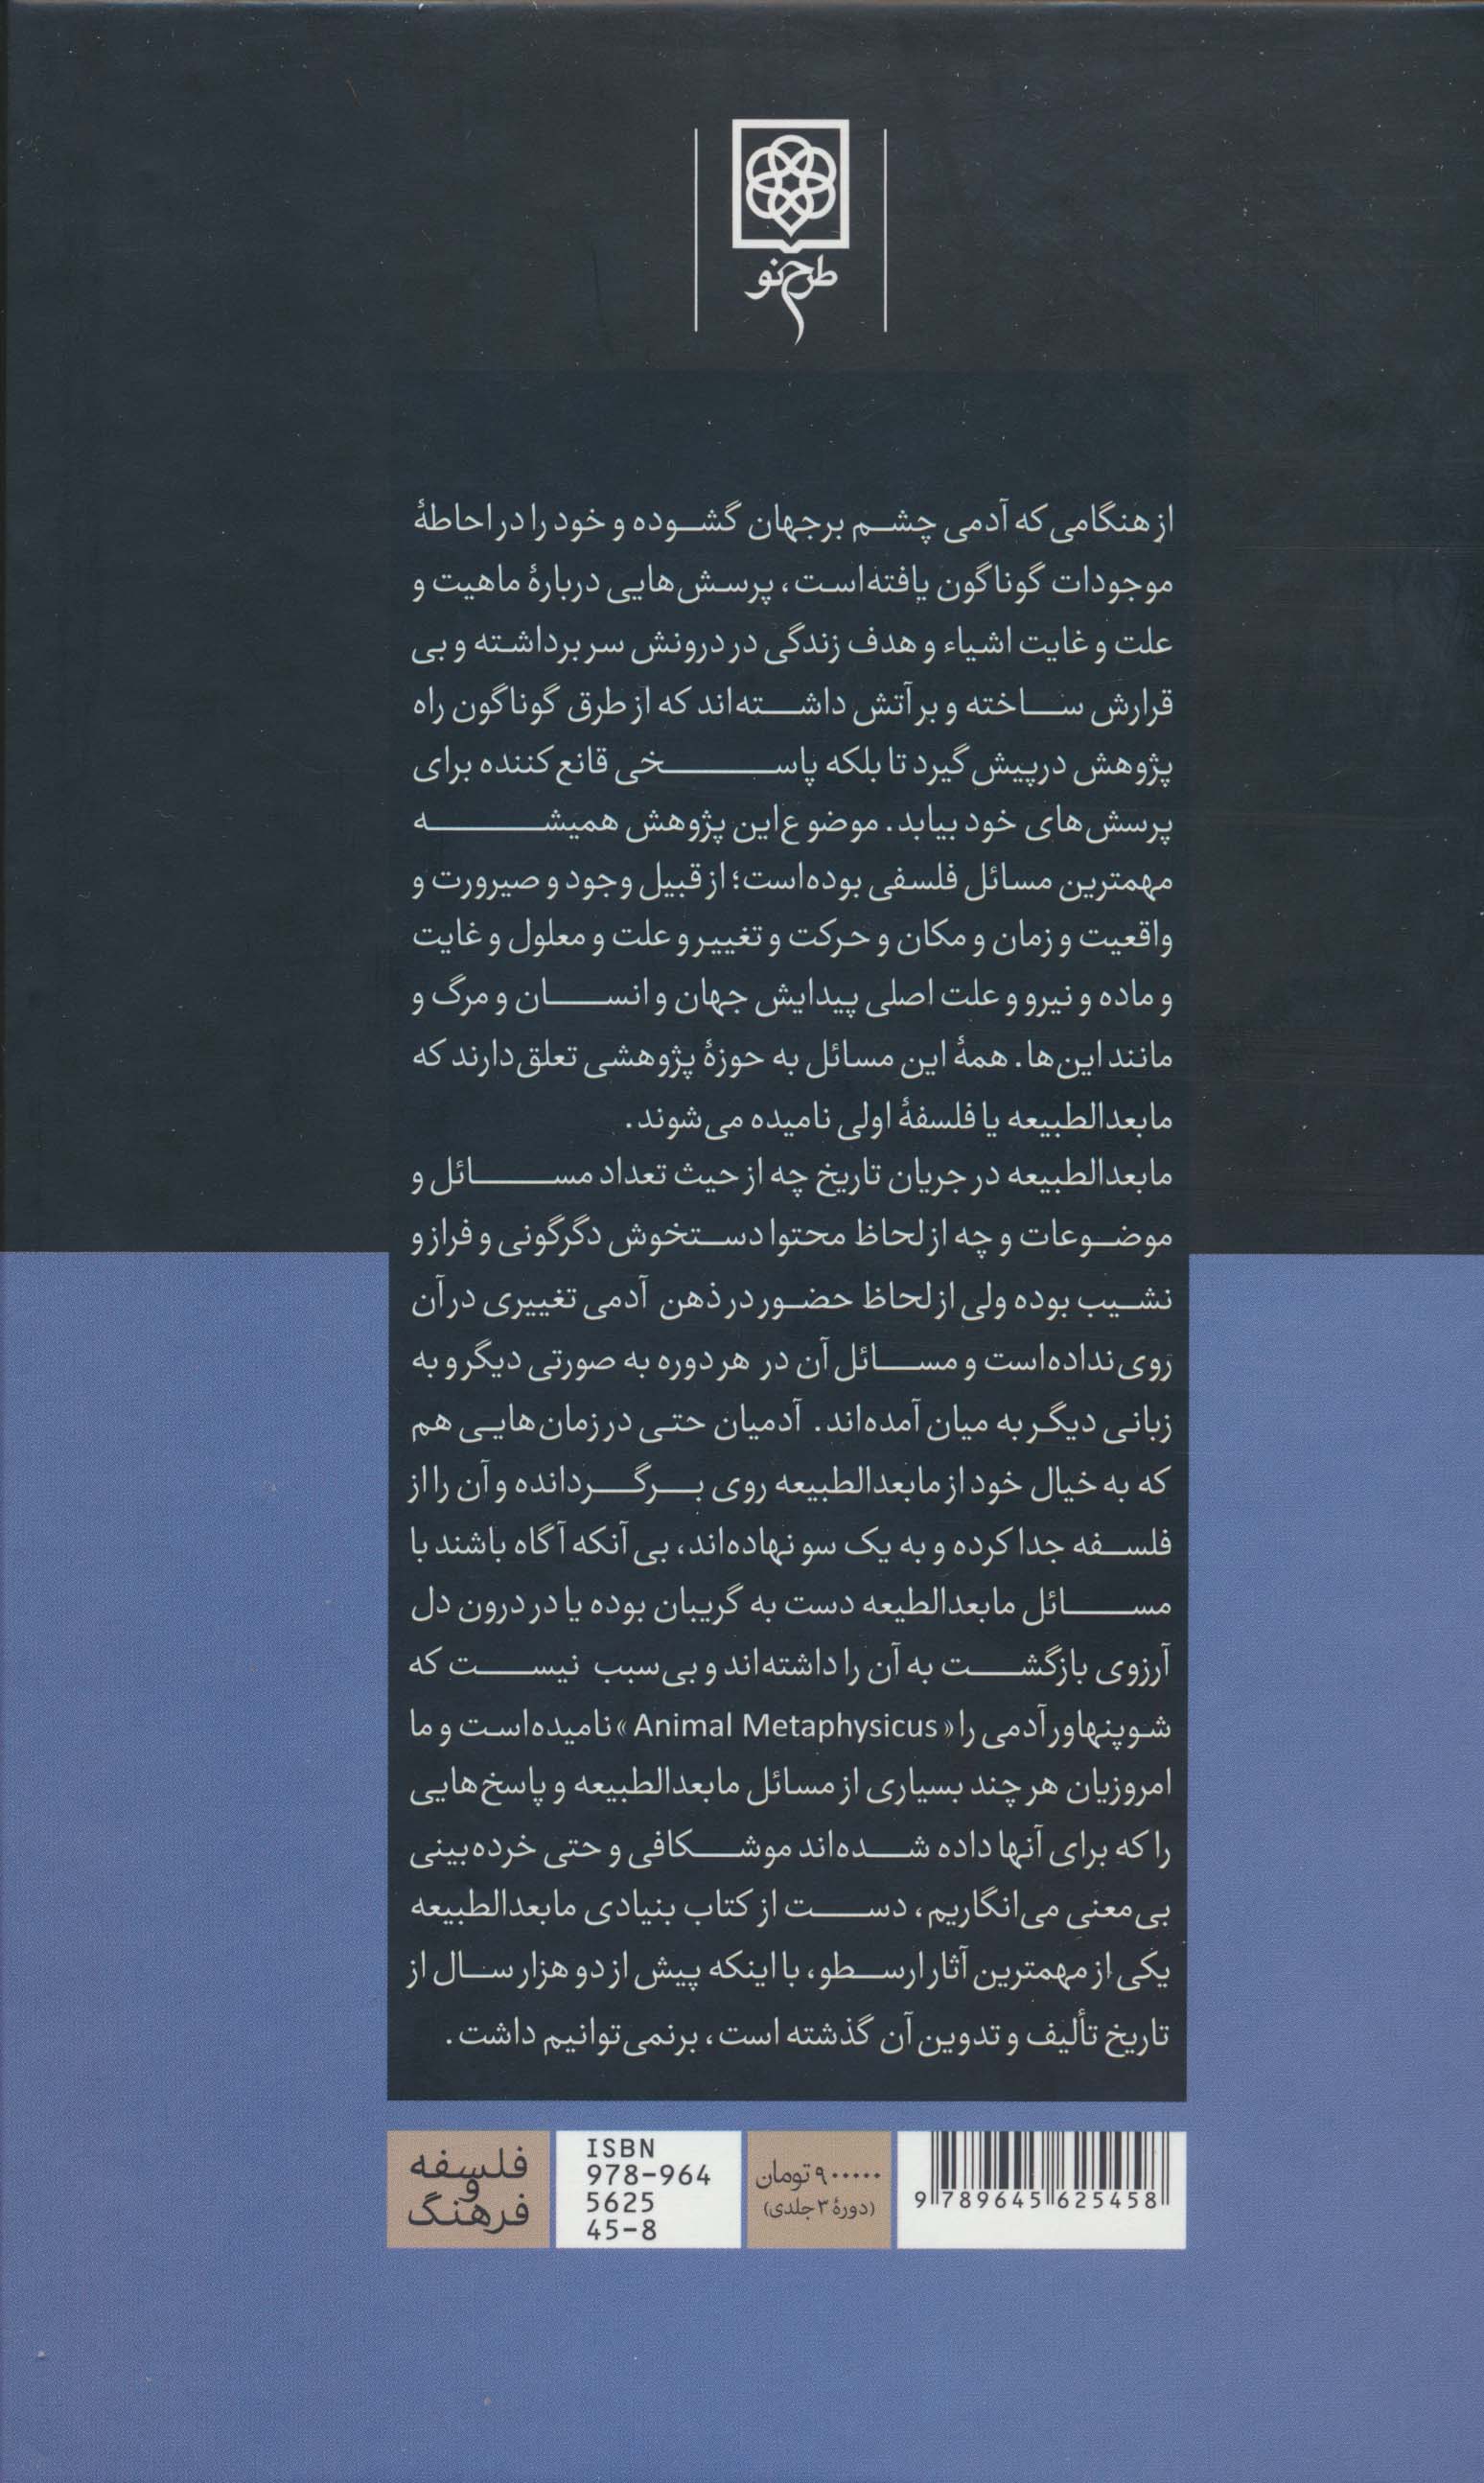 طرح نو
از هنگامی که آدمی چشم بر جهان گشوده و خود را در احاطهٔ
موجودات گوناگون یافته‌است، پرسش‌هایی دربارهٔ ماهیت و
علت و غایت اشیاء و هدف زندگی در درونش سر برداشته و بی
قرارش ساخته و بر آتش داشته‌اند که از طرق گوناگون راه
پژوهش درپیش گیرد تا بلکه پاسخی قانع کننده برای
پرسش‌های خود بیابد. موضوع این پژوهش همیشه
مهمترین مسائل فلسفی بوده‌است؛ از قبیل وجود و صیرورت و
واقعیت و زمان و مکان و حرکت و تغییر و علت و معلول و غایت
و ماده و نیرو و علت اصلی پیدایش جهان و انسان و مرگ و
مانند این‌ها. همهٔ این مسائل به حوزهٔ پژوهشی تعلق دارند که
مابعدالطبیعه یا فلسفهٔ اولی نامیده می‌شوند.
مابعدالطبیعه در جریان تاریخ چه از حیث تعداد مسائل و
موضوعات و چه از لحاظ محتوا دستخوش دگرگونی و فراز و
نشیب بوده ولی از لحاظ حضور در ذهن آدمی تغییری در آن
روی نداده‌است و مسائل آن در هر دوره به صورتی دیگر و به
زبانی دیگر به میان آمده‌اند. آدمیان حتی در زمان‌هایی هم
که به خیال خود از مابعدالطبیعه روی برگردانده و آن را از
فلسفه جدا کرده و به یک سو نهاده‌اند، بی آنکه آگاه باشند با
مسائل مابعدالطیعه دست به گریبان بوده یا در درون دل
آرزوی بازگشت به آن را داشته‌اند و بی‌سبب نیست که
شوپنهاور آدمی را «Animal Metaphysicus» نامیده‌است و ما
امروزیان هر چند بسیاری از مسائل مابعدالطبیعه و پاسخ‌هایی
را که برای آنها داده شده‌اند موشکافی و حتی خرده‌بینی
بی‌معنی می‌انگاریم، دست از کتاب بنیادی مابعدالطبیعه
یکی از مهمترین آثار ارسطو، با اینکه پیش از دو هزار سال از
تاریخ تألیف و تدوین آن گذشته است، برنمی‌توانیم داشت.
9 789645 625458
۹۰۰۰۰۰ تومان
(دورهٔ ۳ جلدی)
ISBN
978-964
5625
45-8
فلسفه
و
فرهنگ